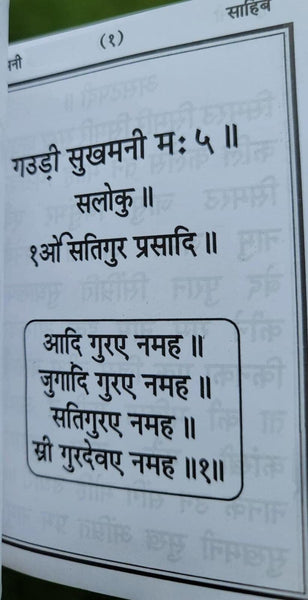 नी (१) साहिब
गउड़ी सुखमनी मः ५ ॥
सलोकु ॥
१ओं सतिगुर प्रसादि ॥
आदि गुरए नमह ॥
जुगादि गुरए नमह ॥
सतिगुरए नमह ॥
स्री गुरदेवए नमह ॥१॥